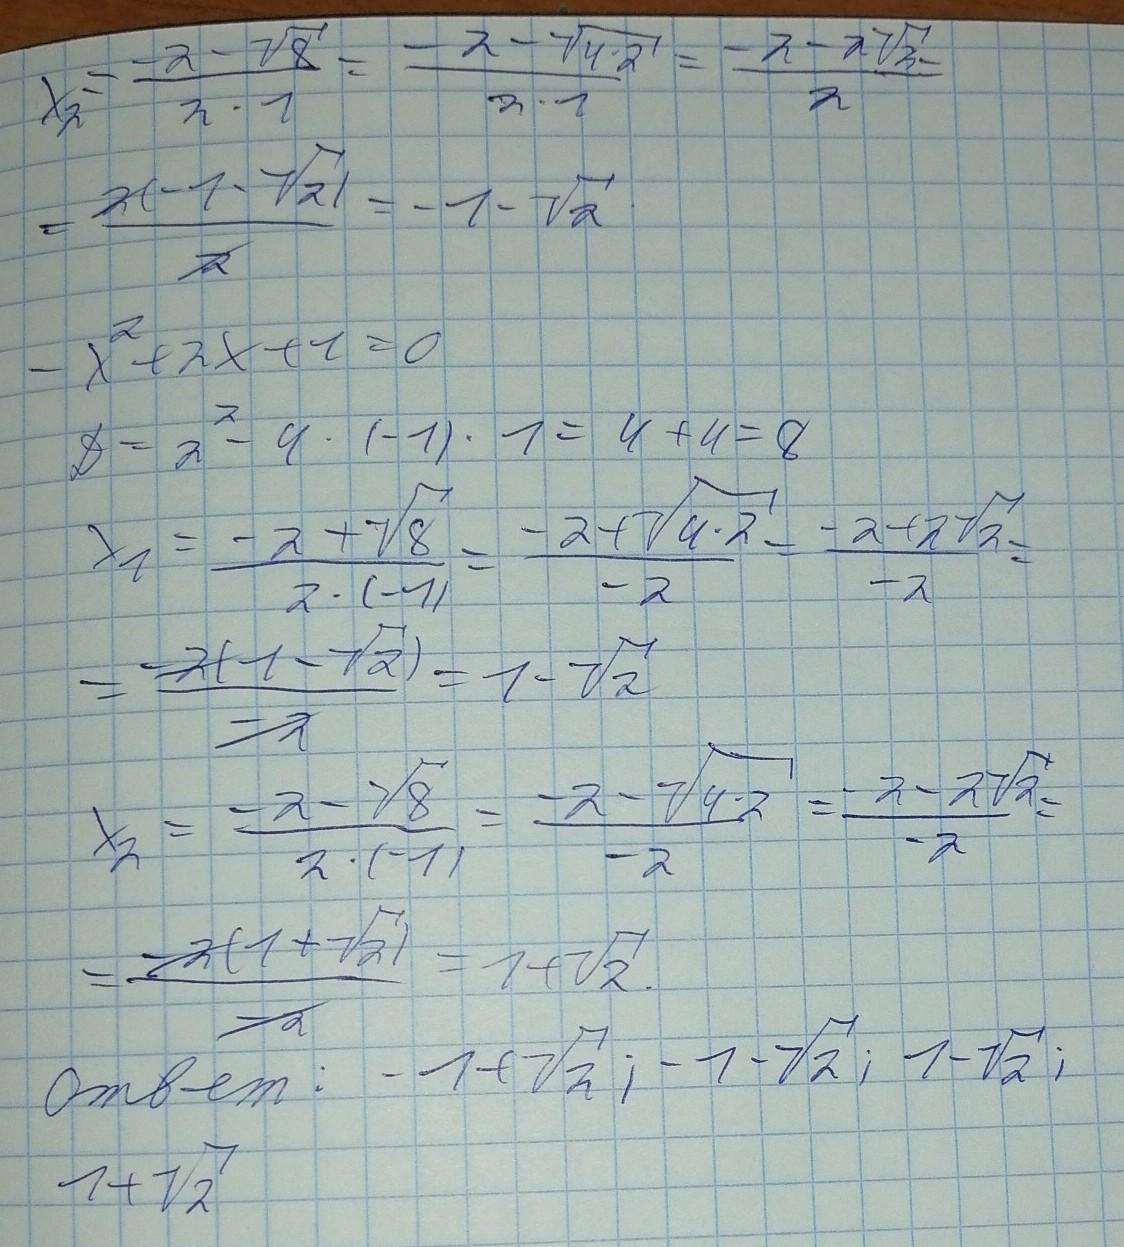 x₂ = (-2 - √8)/(2 · 1) = (-2 - √(4·2))/(2 · 1) = (-2 - 2√2)/2 =
= 2(-1 - √2)/2 = -1 - √2
-x² + 2x + 1 = 0
D = 2² - 4 · (-1) · 1 = 4 + 4 = 8
x₁ = (-2 + √8)/(2 · (-1)) = (-2 + √(4·2))/(-2) = (-2 + 2√2)/(-2) =
= -2(1 - √2)/(-2) = 1 - √2
x₂ = (-2 - √8)/(2 · (-1)) = (-2 - √(4·2))/(-2) = (-2 - 2√2)/(-2) =
= -2(1 + √2)/(-2) = 1 + √2.
Ответ: -1 + √2; -1 - √2; 1 - √2;
1 + √2